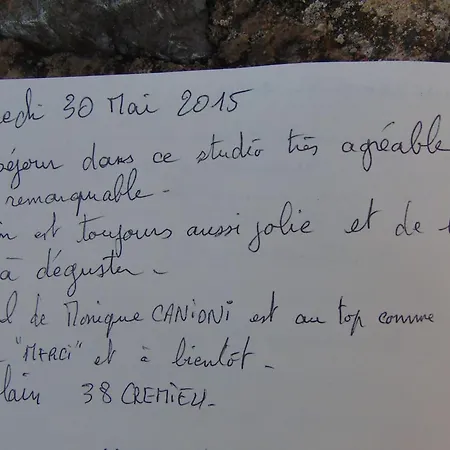 edi 30 Mai 2015
séjour dans ce studio très agréable
remarquable.
n est toujours aussi jolie et de
à déguster.
l de Monique CANIONI est au top comme
"MERCI" et à bientôt.
lain 38 CREMIEU.